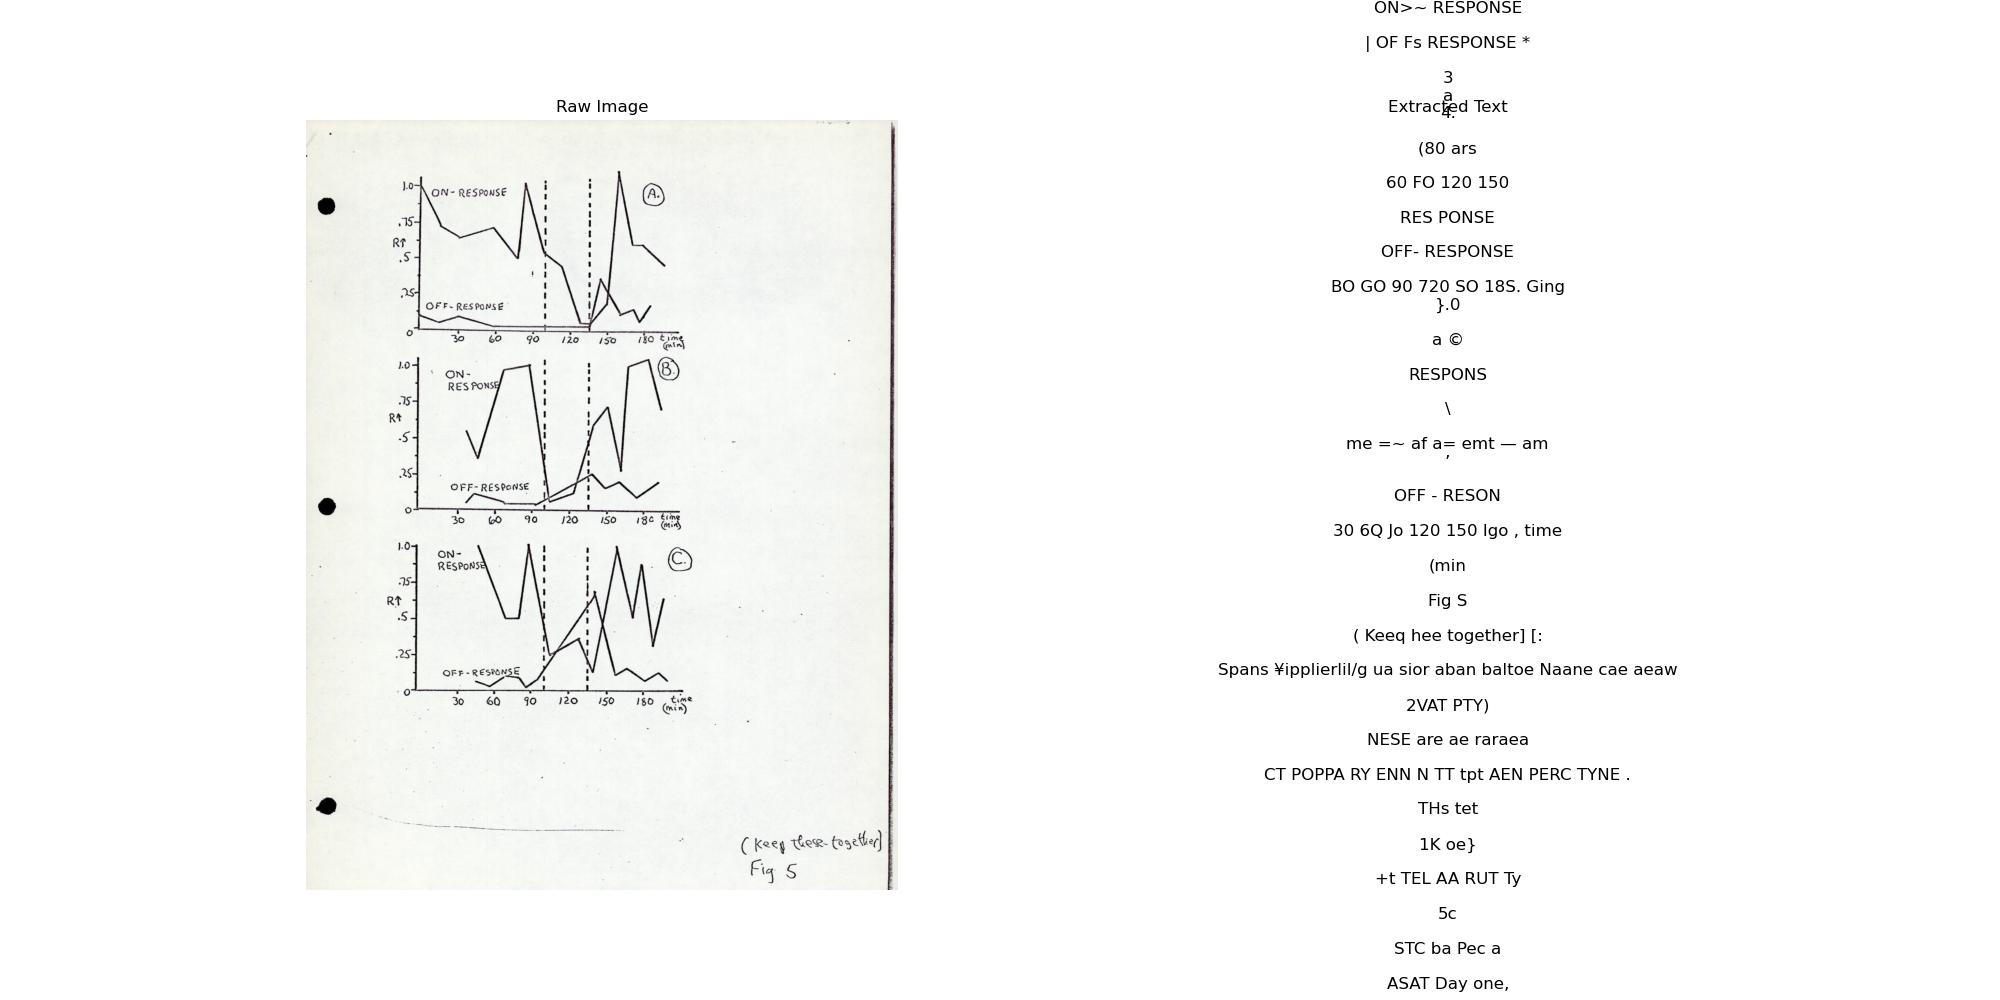 Raw Image
1.0
ON-RESPONSE
A.
.75
R↑
.5
.25
OFF-RESPONSE
0
30 60 90 120 150 180 time
(min)
1.0
ON-
RESPONSE
B.
.75
R↑
.5
.25
OFF-RESPONSE
0
30 60 90 120 150 180 time
(min)
1.0
ON-
RESPONSE
C.
.75
R↑
.5
.25
OFF-RESPONSE
0
30 60 90 120 150 180 time
(min)
(Keep these together)
Fig 5
ON>~ RESPONSE
| OF Fs RESPONSE *
3
a
Extracted Text
4.
(80 ars
60 FO 120 150
RES PONSE
OFF- RESPONSE
BO GO 90 720 SO 18S. Ging
}.0
a ©
RESPONS
\
me =~ af a= emt — am
,
OFF - RESON
30 6Q Jo 120 150 lgo , time
(min
Fig S
( Keeq hee together] [:
Spans ¥ipplierlil/g ua sior aban baltoe Naane cae aeaw
2VAT PTY)
NESE are ae raraea
CT POPPA RY ENN N TT tpt AEN PERC TYNE .
THs tet
1K oe}
+t TEL AA RUT Ty
5c
STC ba Pec a
ASAT Day one,